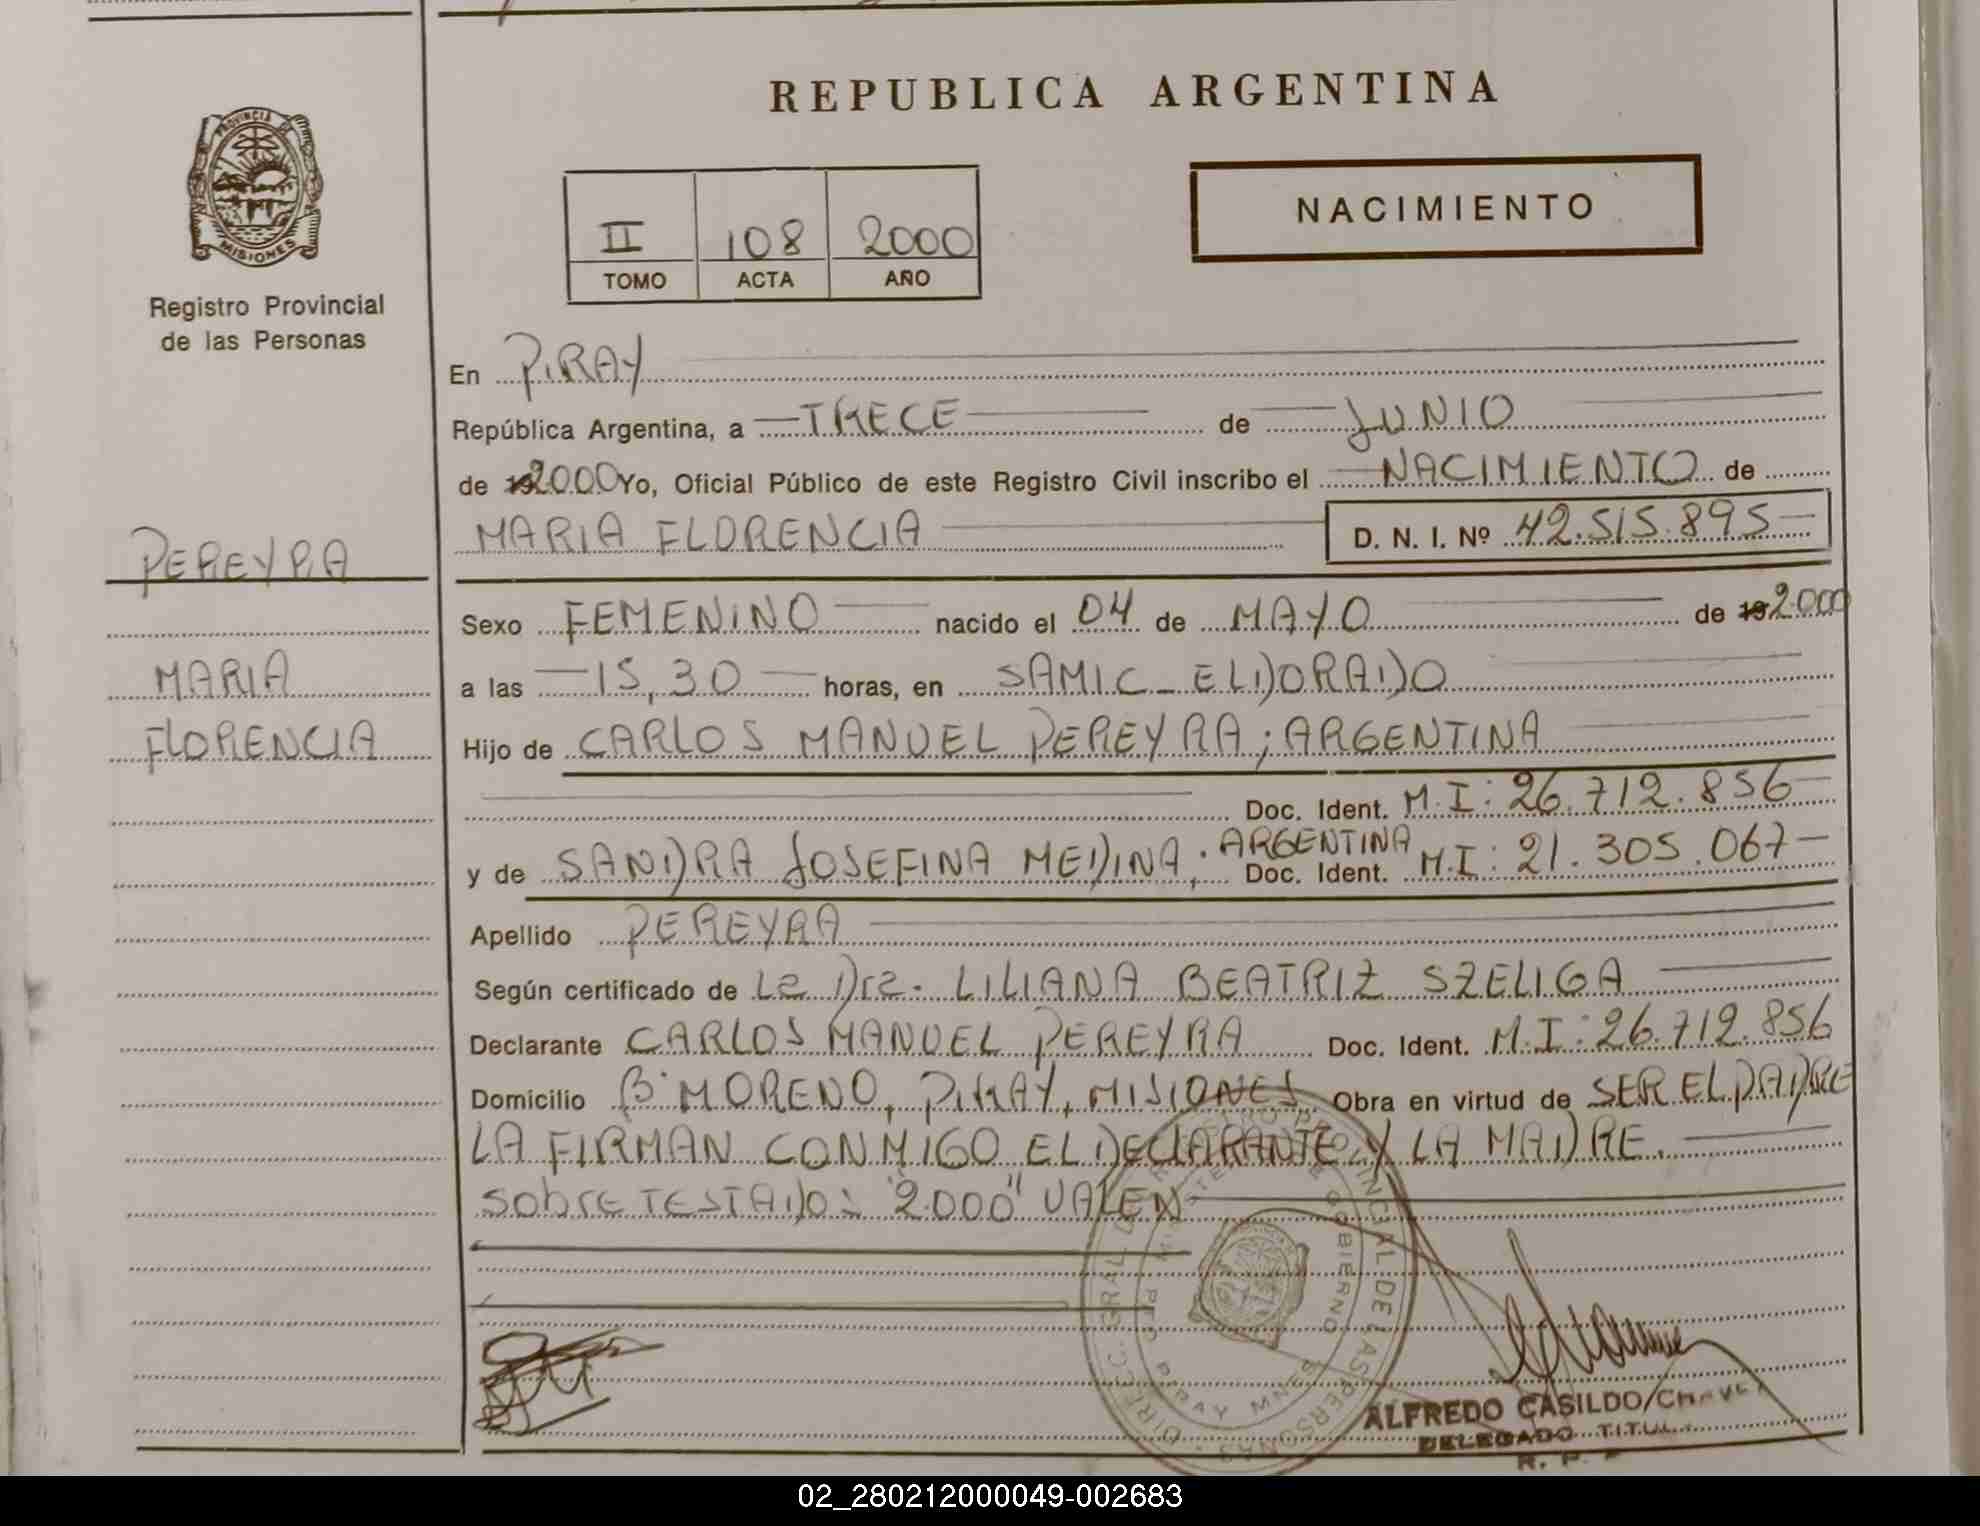 REPUBLICA ARGENTINA
PROVINCIA DE
MISIONES
Registro Provincial
de las Personas
II 108 2000
TOMO ACTA AÑO
NACIMIENTO
En PIRAY
República Argentina, a TRECE de JUNIO
de 192000 Yo, Oficial Público de este Registro Civil inscribo el NACIMIENTO de
MARIA FLORENCIA D. N. I. Nº 42.515.895
PEREYRA
MARIA
FLORENCIA
Sexo FEMENINO nacido el 04 de MAYO de 192000
a las 15,30 horas, en SAMIC - ELDORADO
Hijo de CARLOS MANUEL PEREYRA; ARGENTINA
Doc. Ident. M.I: 26.712.856
y de SANDRA JOSEFINA MEDINA; ARGENTINA Doc. Ident. M.I: 21.305.067
Apellido PEREYRA
Según certificado de La Dra. LILIANA BEATRIZ SZELIGA
Declarante CARLOS MANUEL PEREYRA Doc. Ident. M.I: 26.712.856
Domicilio Bº MORENO, PIRAY, MISIONES Obra en virtud de SER EL PADRE
LA FIRMAN CONMIGO EL DECLARANTE Y LA MADRE.
SobrE TESTADOS "2000" VALEN
DIREC. GRAL. DEL REGISTRO PROVINCIAL DE LAS PERSONAS
MINISTERIO DE GOBIERNO
PTO PIRAY MNES
ALFREDO CASILDO CHAVEZ
DELEGADO TITUL
R. P.
02_280212000049-002683